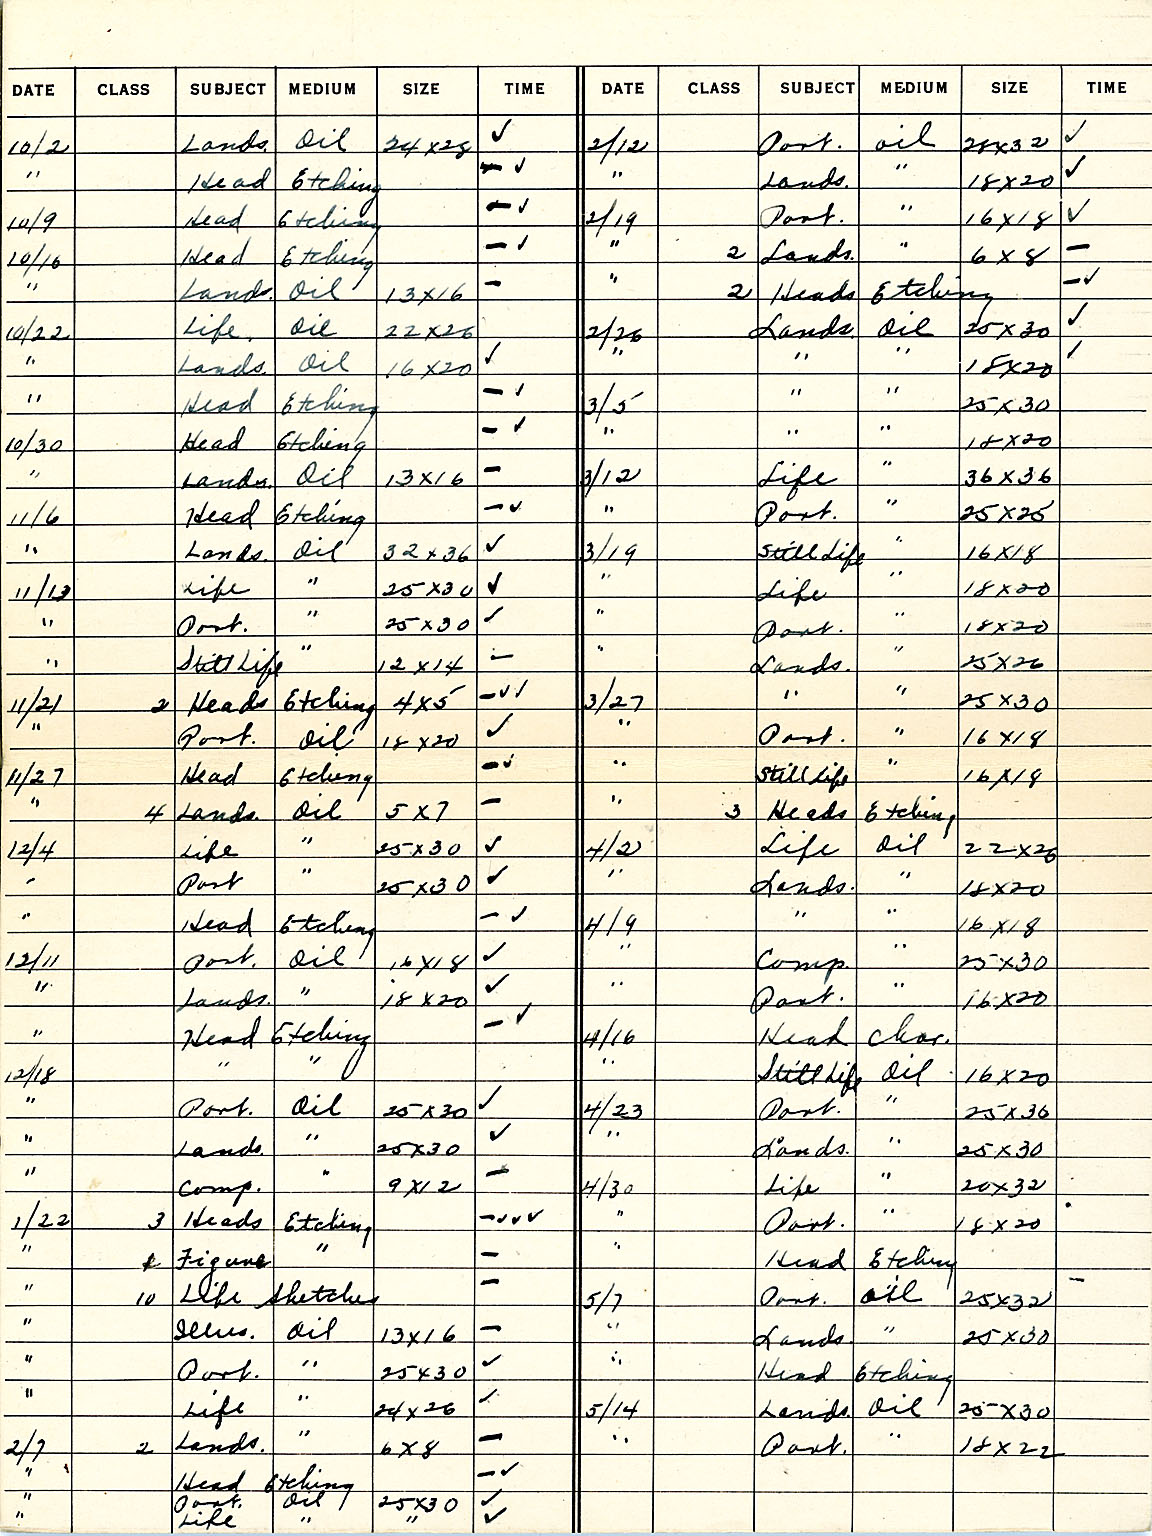 DATE CLASS SUBJECT MEDIUM SIZE TIME
10/2 Lands. Oil 24x28 ✓
" Head Etching — ✓
10/9 Head Etching — ✓
10/16 Head Etching — ✓
" Lands. Oil 13x16 —
10/22 Life. Oil 22x26
" Lands. Oil 16x20 ✓
" Head Etching — ✓
10/30 Head Etching — ✓
" Lands. Oil 13x16 —
11/6 Head Etching — ✓
" Lands. Oil 32x36 ✓
11/13 Life " 25x30 ✓
" Port. " 25x30 ✓
" Still Life " 12x14 —
11/21 2 Heads Etching 4x5 — ✓✓
" Port. Oil 18x20 ✓
11/27 Head Etching — ✓
" 4 Lands. Oil 5x7 —
12/4 Life " 25x30 ✓
" Port " 25x30 ✓
" Head Etching — ✓
12/11 Port. Oil 16x18 ✓
" Lands. " 18x20 ✓
" Head Etching — ✓
12/18 " "
" Port. Oil 25x30 ✓
" Lands. " 25x30 ✓
" Comp. " 9x12 —
1/22 3 Heads Etching — ✓✓✓
" Figure " —
" 10 Life Sketches —
" Illus. Oil 13x16 —
" Port. " 25x30 ✓
" Life " 24x26 ✓
2/7 2 Lands. " 6x8 —
" Head Etching — ✓
" Port. Oil 25x30 ✓
" Life " " ✓
DATE CLASS SUBJECT MEDIUM SIZE TIME
2/12 Port. oil 28x32 ✓
" Lands. " 18x20 ✓
2/19 Port. " 16x18 ✓
" 2 Lands. " 6x8 —
" 2 Heads Etching — ✓
2/26 Lands. Oil 25x30 ✓
" " " 18x20 ✓
3/5 " " 25x30
" " " 18x20
3/12 Life " 36x36
" Port. " 25x25
3/19 Still Life " 16x18
" Life " 18x20
" Port. " 18x20
" Lands. " 25x26
3/27 " " 25x30
" Port. " 16x18
" Still Life " 16x18
" 3 Heads Etching
4/2 Life Oil 22x26
" Lands. " 18x20
4/9 " " 16x18
" Comp. " 25x30
" Port. " 16x20
4/16 Head Char.
" Still Life Oil 16x20
4/23 Port. " 25x36
" Lands. " 25x30
4/30 Life " 20x32
" Port. " 18x20
" Head Etching
5/7 Port. oil 25x32 —
" Lands. " 25x30
" Head Etching
5/14 Lands. Oil 25x30
" Port. " 18x22